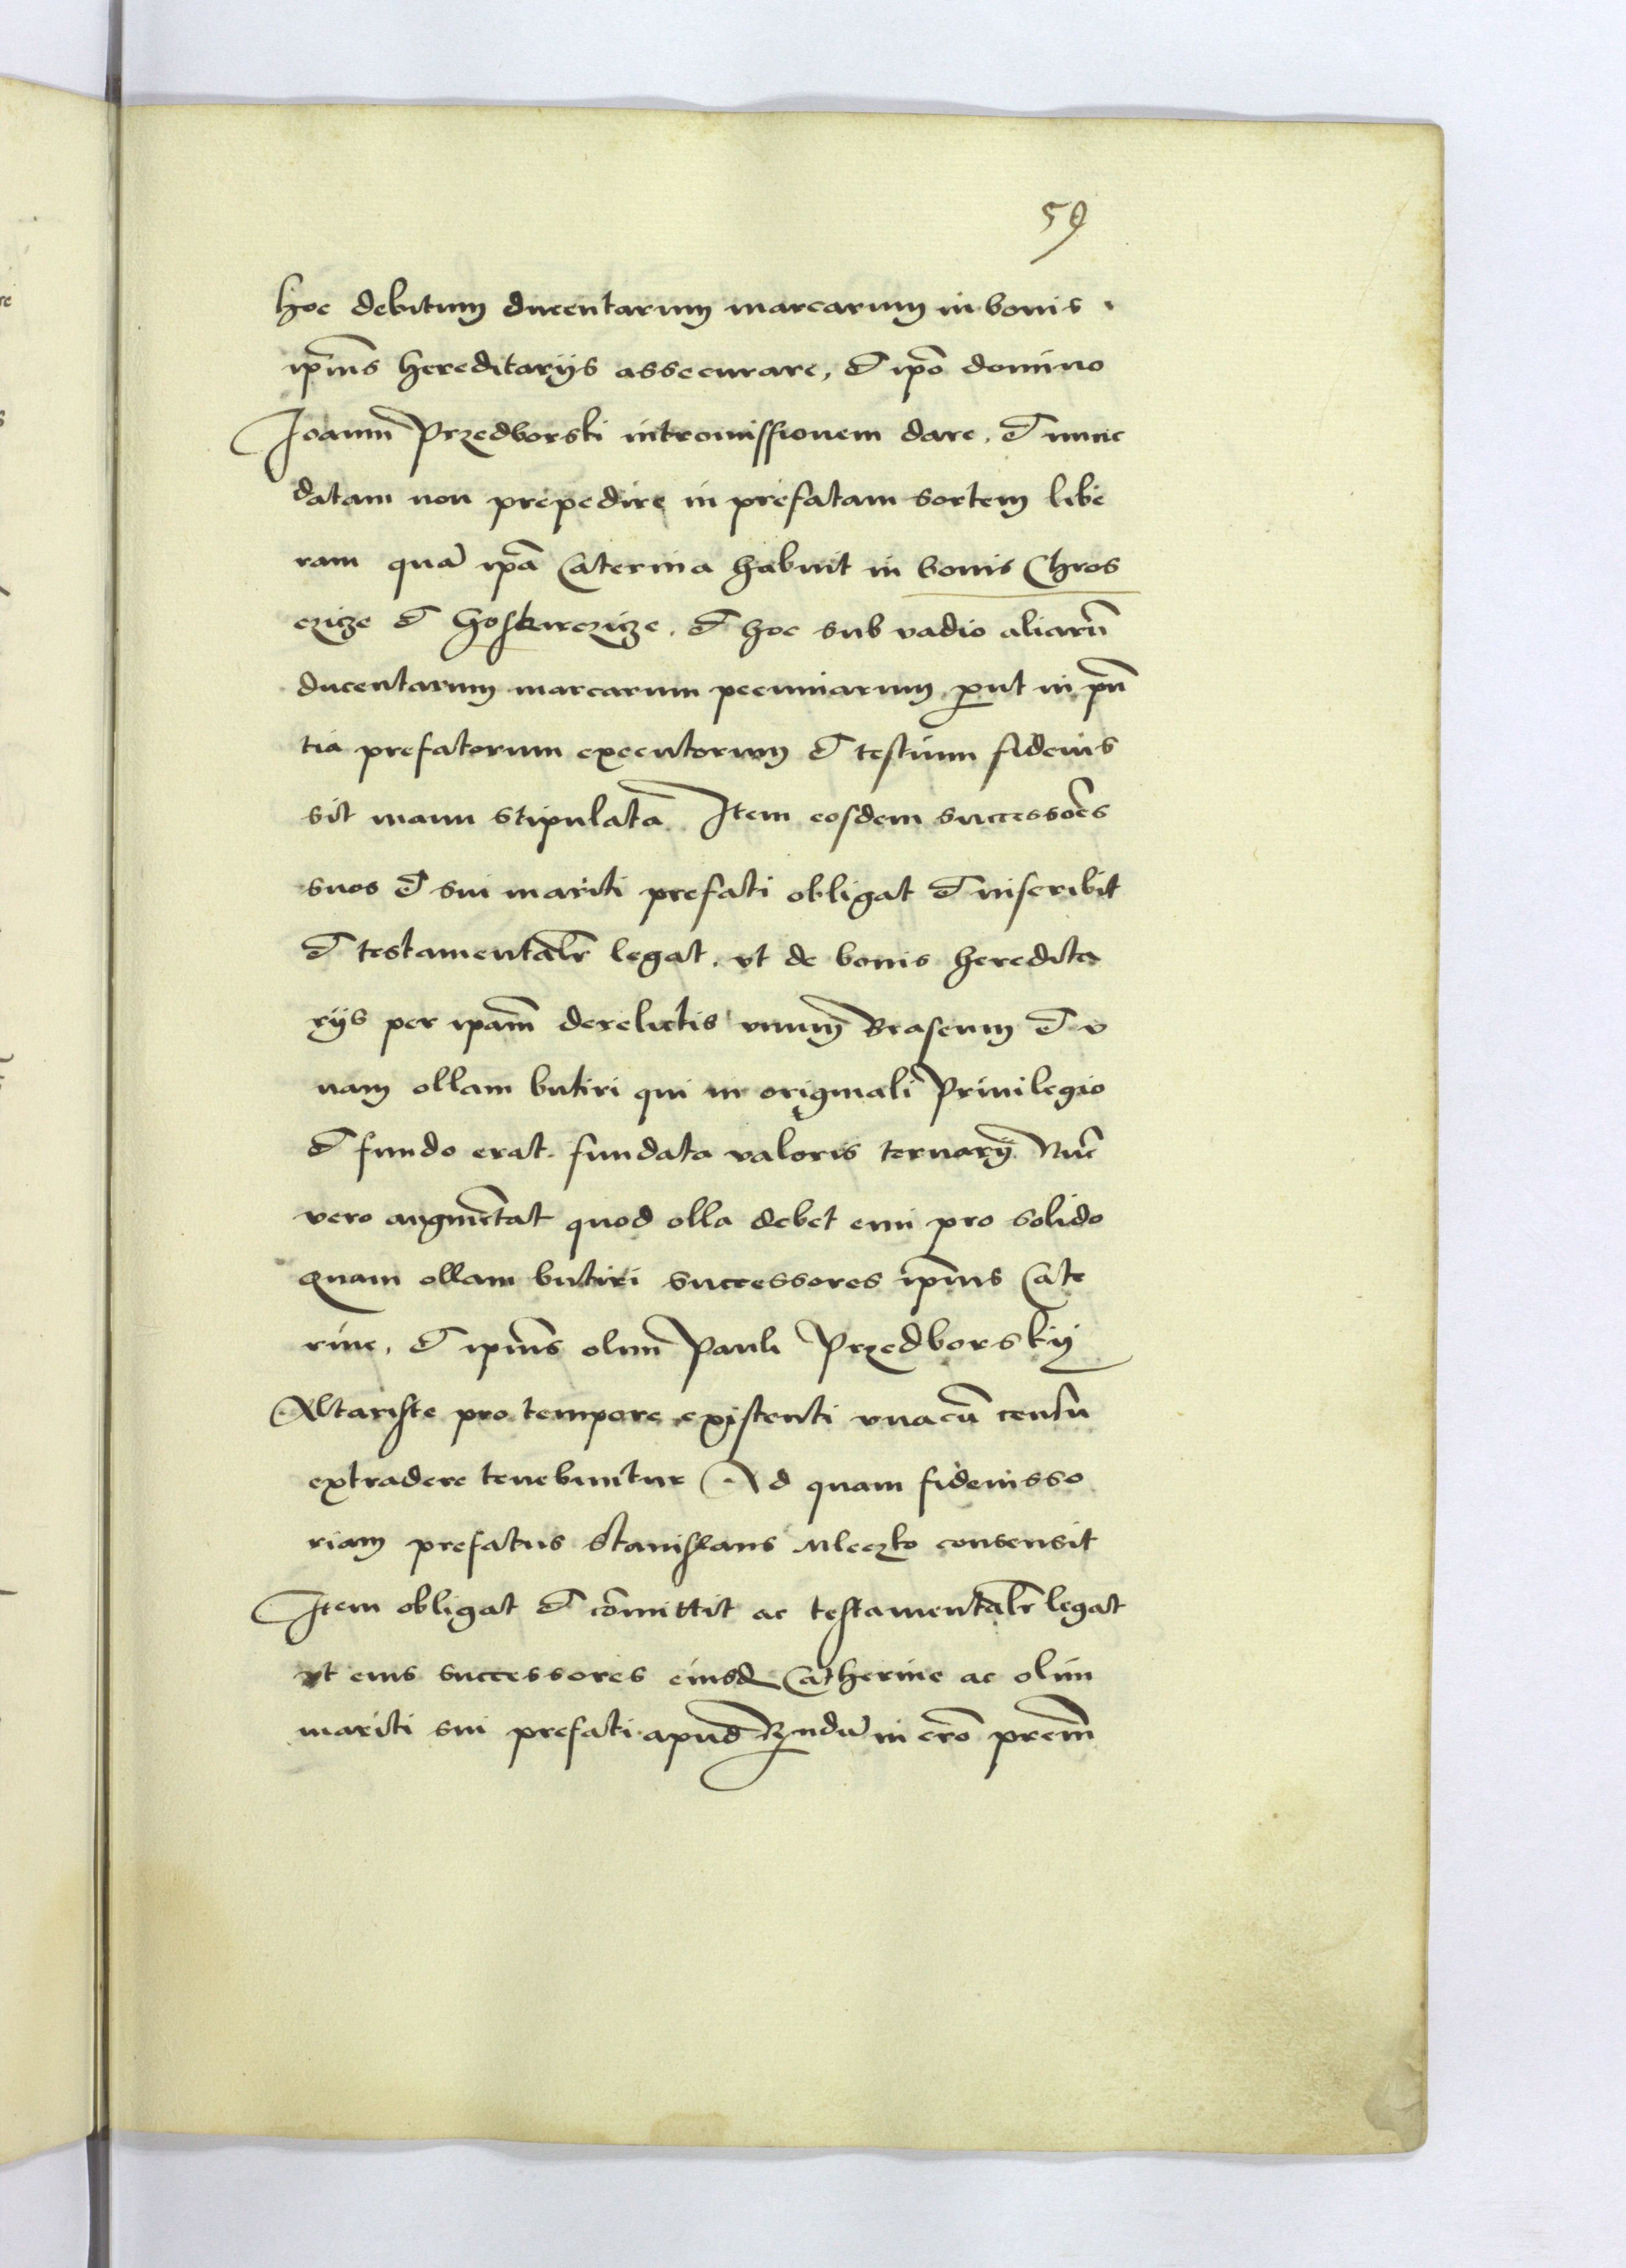 59
hoc debitum ducentarum marcarum in bonis
ip̄ius hereditarijs assecurare, et ip̄o domino
Joanni Przedborski intromissionem dare, et nunc
datam non prepedire in prefatam sortem libe
ram quā ip̄a Caterina habuit in bonis Chros
czicze et Goskurczicze, et hoc sub vadio aliarū
ducentarum marcarum pecuniarum put in p̄n
tia prefatorum executorum et testium fideius
sit manu stipulata. Item eosdem successōes
suos et sui mariti prefati obligat et inscribit
et testamentalr̄ legat, vt de bonis heredita
rijs per ip̄am derelictis vnum Braseum et v
nam ollam butiri qui in originali Priuilegio
et fundo erat fundata valoris ternarij Nūc
vero augmētat quod olla debet emi pro solido
Quam ollam butiri successores ip̄ius Cate
rine, et ip̄ius olim Pauli Przedborskij
Altariste pro tempore existenti vnacū censu
extradere tenebuntur Ad quam fideiusso
riam prefatus Stanislaus Mleczko consensit
Item obligat et cōmittit ac testamentalr̄ legat
vt eius successores eiusd Catherine ac olim
mariti sui prefati apud in